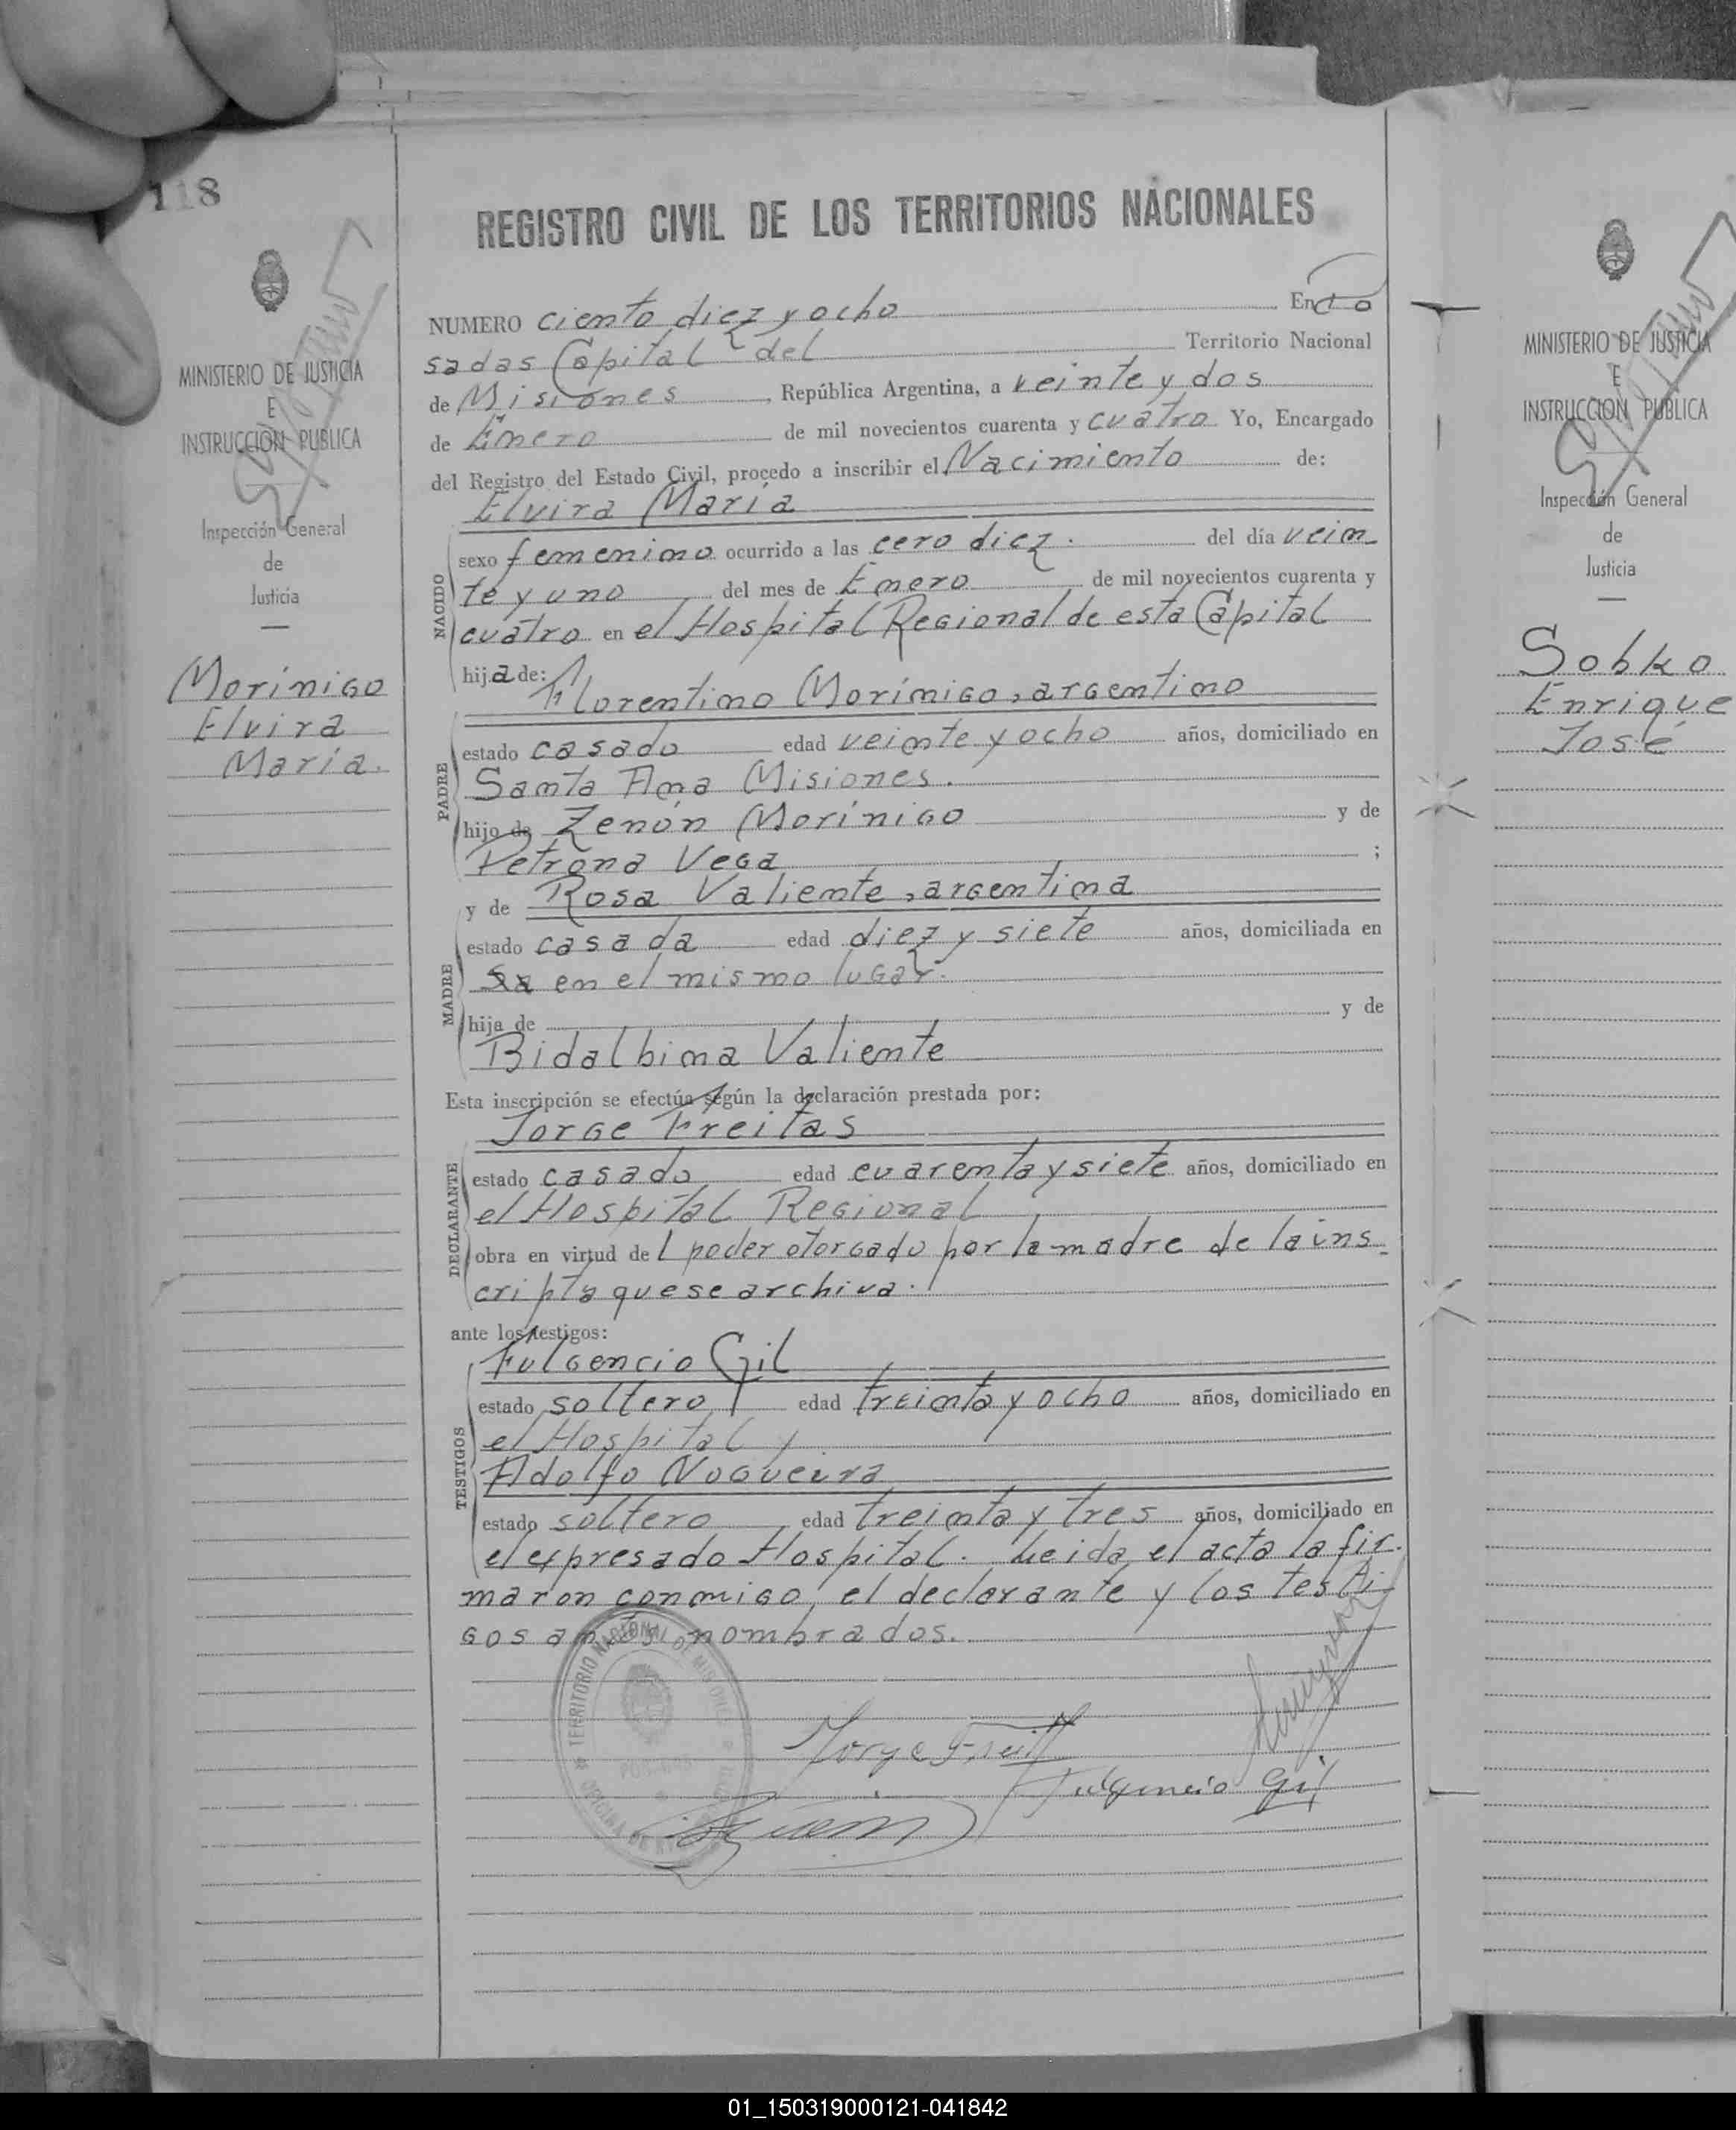 118
MINISTERIO DE JUSTICIA
E
INSTRUCCION PUBLICA
Inspección General
de
Justicia
Morínigo
Elvira
María.
REGISTRO CIVIL DE LOS TERRITORIOS NACIONALES
NUMERO ciento diez y ocho En Po
sadas Capital del Territorio Nacional
de Misiones, República Argentina, a veinte y dos
de Enero de mil novecientos cuarenta y cuatro Yo, Encargado
del Registro del Estado Civil, procedo a inscribir el Nacimiento de:
Elvira María
NACIDO
sexo femenino ocurrido a las cero diez. del día vein
te y uno del mes de Enero de mil novecientos cuarenta y
cuatro en el Hospital Regional de esta Capital
hija de:
Florentino Morínigo, argentino
PADRE
estado casado edad veinte y ocho años, domiciliado en
Santa Ana Misiones.
hijo de Zenón Morínigo y de
Petrona Vega ;
y de Rosa Valiente, argentina
MADRE
estado casada edad diez y siete años, domiciliada en
en el mismo lugar.
hija de y de
Bidalbina Valiente
Esta inscripción se efectúa según la declaración prestada por:
Jorge Freitas
DECLARANTE
estado casado edad cuarenta y siete años, domiciliado en
el Hospital Regional
obra en virtud del poder otorgado por la madre de la ins_
cripta que se archiva.
ante los testigos:
Fulgencio Gil
TESTIGOS
estado soltero edad treinta y ocho años, domiciliado en
el Hospital y
Adolfo Nogueira
estado soltero edad treinta y tres años, domiciliado en
el expresado Hospital. Leida el acta la fir.
maron conmigo, el declarante y los testi
gos antes nombrados.
TERRITORIO NACIONAL DE MISIONES
POSADAS
OFICINA DE
Jorge Freitas
Fulgencio Gil
MINISTERIO DE JUSTICIA
E
INSTRUCCION PUBLICA
Inspección General
de
Justicia
Sobko
Enrique
José
01_150319000121-041842